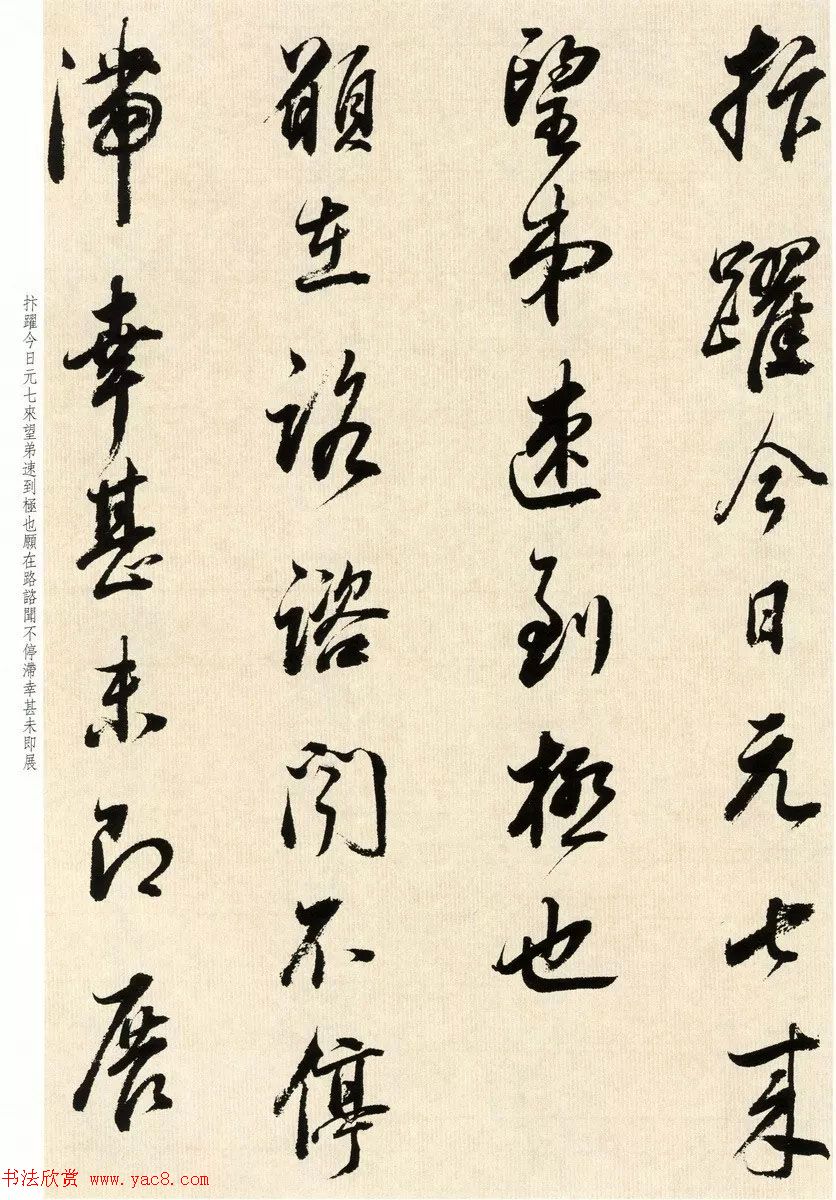 抃躍今日元七来
望弟速到極也
願在路諮聞不停
滯幸甚未即展
抃躍今日元七來望弟速到極也願在路諮聞不停滯幸甚未即展
书法欣赏 www.yac8.com